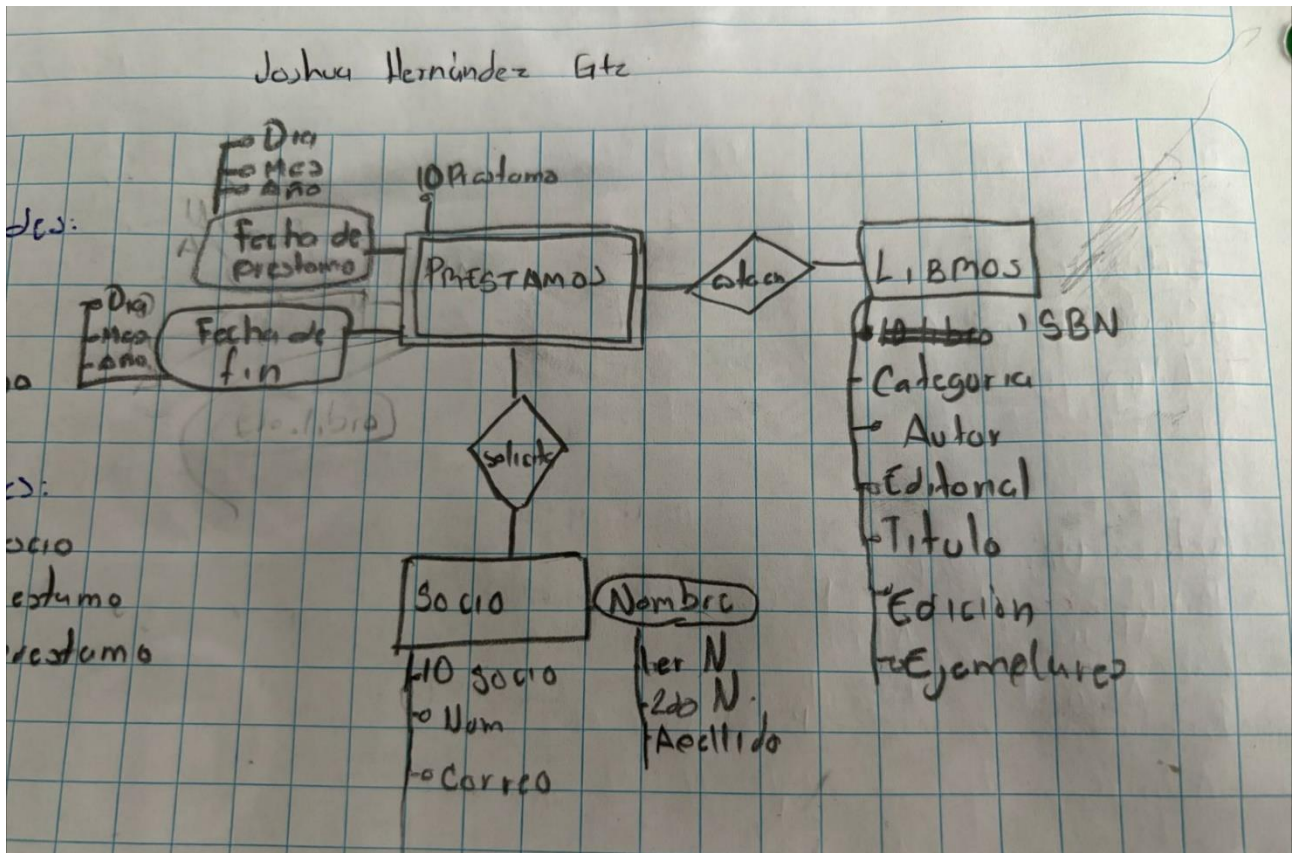 Joshua Hernández Gtz
Dia
Mes
Año
ID Prestamo
des:
Fecha de
prestamo
PRESTAMOS
esta en
LIBROS
Dia
Mes
Año
Fecha de
fin
ISBN
Categoria
Autor
Editorial
Titulo
Edición
Ejemplares
solicita
ocio
estamo
restamo
Socio
Nombre
ID socio
Num
Correo
1er N.
2do N.
Apellido